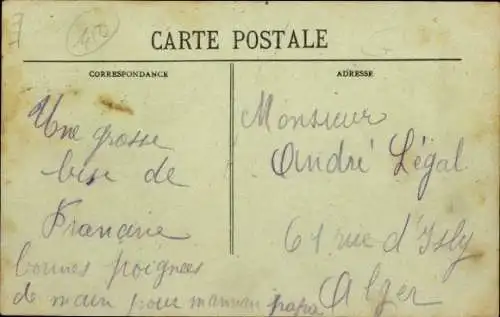 450
CARTE POSTALE
CORRESPONDANCE
ADRESSE
Une grosse
bise de
Francine
bonnes poignées
de main pour maman papa
Monsieur
André Légal
61 rue d'Isly
Alger